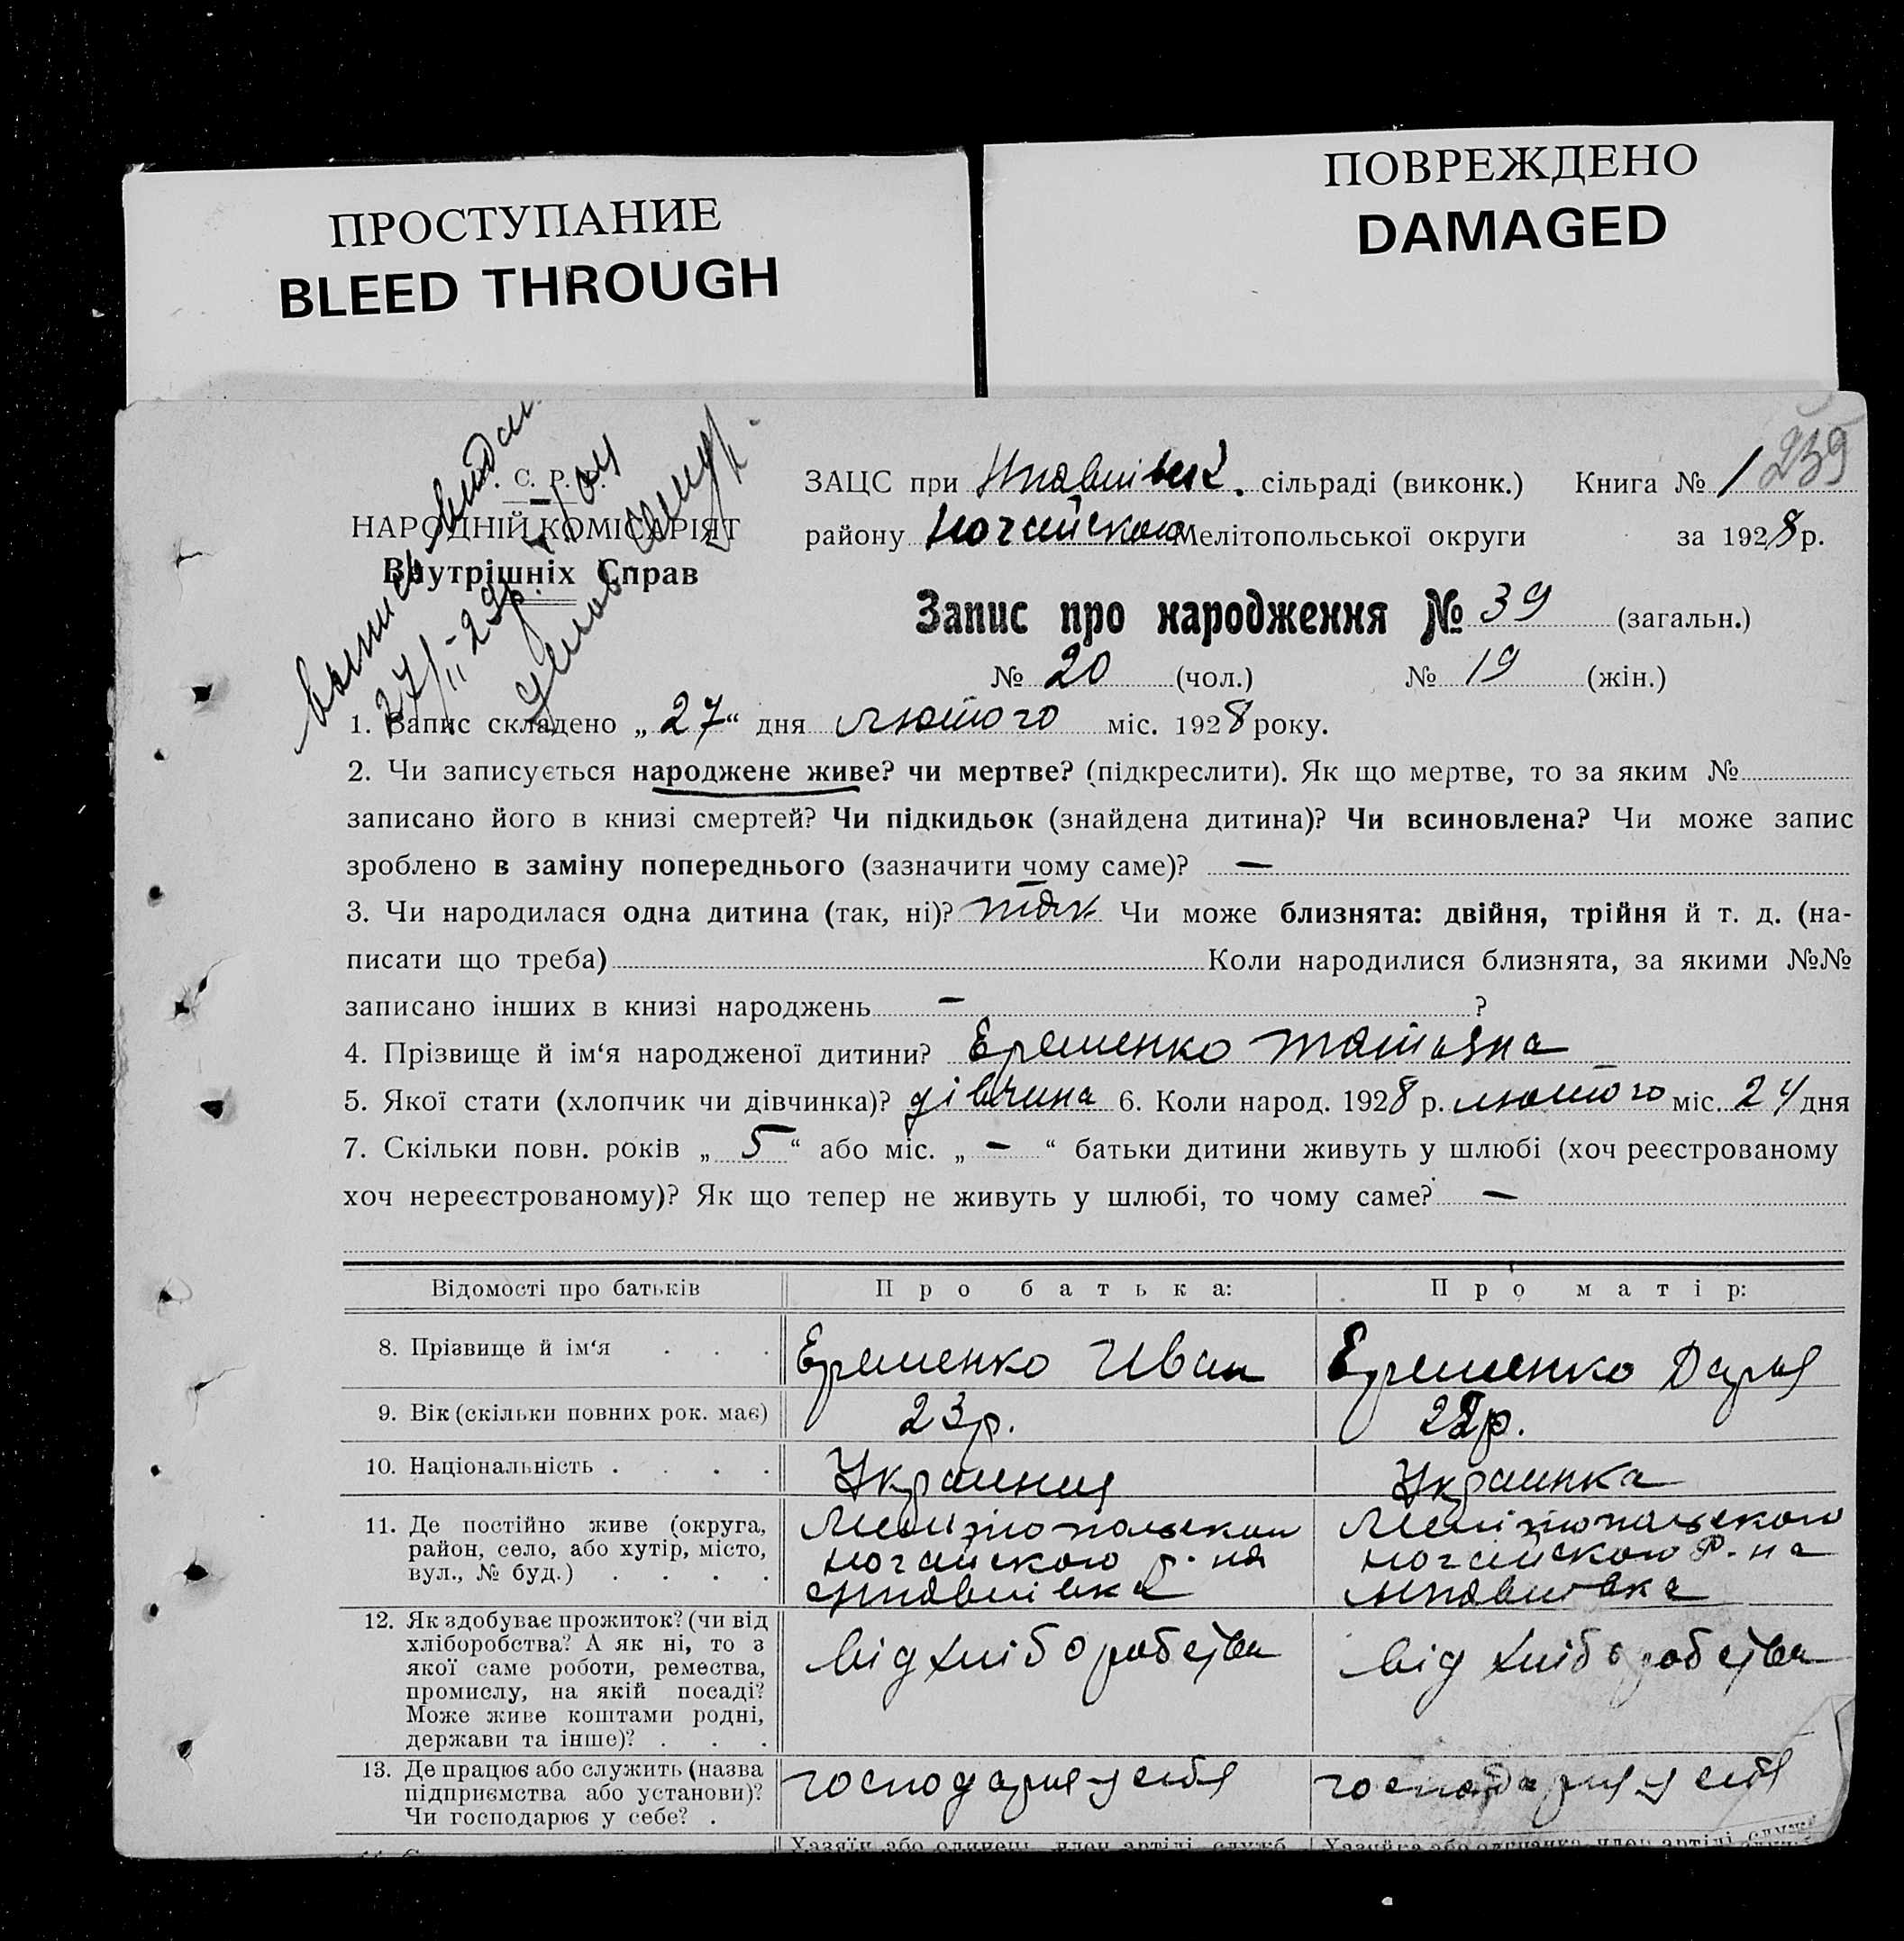 ПРОСТУПАНИЕ
BLEED THROUGH
ПОВРЕЖДЕНО
DAMAGED
239
С. Р. Р.
НАРОДНІЙ КОМІСАРІЯТ
Внутрішніх Справ
27/II-29р.
ЗАЦС при сільраді (виконк.) Книга № 1
району Ногайского Мелітопольської округи за 1928 р.
Запис про народження № 39 (загальн.)
№ 20 (чол.) № 19 (жін.)
1. Запис складено „27“ дня лютого міс. 1928 року.
2. Чи записується народжене живе? чи мертве? (підкреслити). Як що мертве, то за яким №
записано його в книзі смертей? Чи підкидьок (знайдена дитина)? Чи всиновлена? Чи може запис
зроблено в заміну попереднього (зазначити чому саме)? —
3. Чи народилася одна дитина (так, ні)? так Чи може близнята: двійня, трійня й т. д. (на-
писати що треба) Коли народилися близнята, за якими №№
записано інших в книзі народжень — ?
4. Прізвище й ім‘я народженої дитини? Еременко Татьяна
5. Якої стати (хлопчик чи дівчинка)? дівчина 6. Коли народ. 1928 р. лютого міс. 24 дня
7. Скільки повн. років „5“ або міс. „—“ батьки дитини живуть у шлюбі (хоч реєстрованому
хоч нереєстрованому)? Як що тепер не живуть у шлюбі, то чому саме? —
Відомості про батьків Про батька: Про матір:
8. Прізвище й ім‘я . . . Еременко Иван Еременко Дарья
9. Вік (скільки повних рок. має) 23р. 22р.
10. Національність . . . . Украинец Украинка
11. Де постійно живе (округа, Мелітопольского Мелітопольского
район, село, або хутір, місто, Ногайского р-на Ногайского р-на
вул., № буд.) . . . .
12. Як здобуває прожиток? (чи від
хліборобства? А як ні, то з від хліборобства від хліборобства
якої саме роботи, ремества,
промислу, на якій посаді?
Може живе коштами родні,
держави та інше)? . . .
13. Де працює або служить (назва господария у себя господария у себя
підприємства або установи)?
Чи господарює у себе? .
Хазяїн або одинець, член артілі, служб.